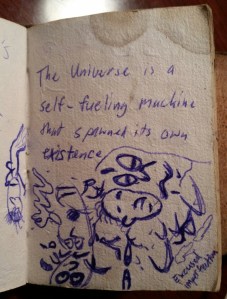 The Universe is a
self-fueling machine
that spawned its own
existance